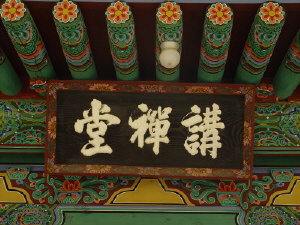 講禪堂